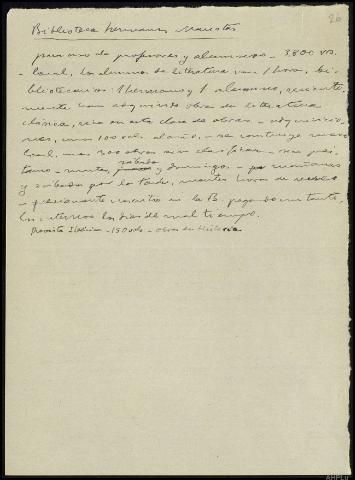 26
Biblioteca hermanos Maristas
para uso de profesores y alumnos - 3.800 vs.
- local, los alumnos de literatura van 1 hora, bi-
bliotecarios 1 hermano y 1 alumno, reciente-
mente han adquirido obras de literatura
clásica, rica en esta clase de obras - adquisicio-
nes, unos 100 vols. al año, - se construye nuevo
local, unas 300 obras sin clasificar -
sábado
y domingo - mañanas
y sábado por la tarde, horas de recreo
- en la B. pagando un tanto,
los internos los días de mal tiempo.
Revista Ibérica - 150 vols - obras de Historia
AHPLu